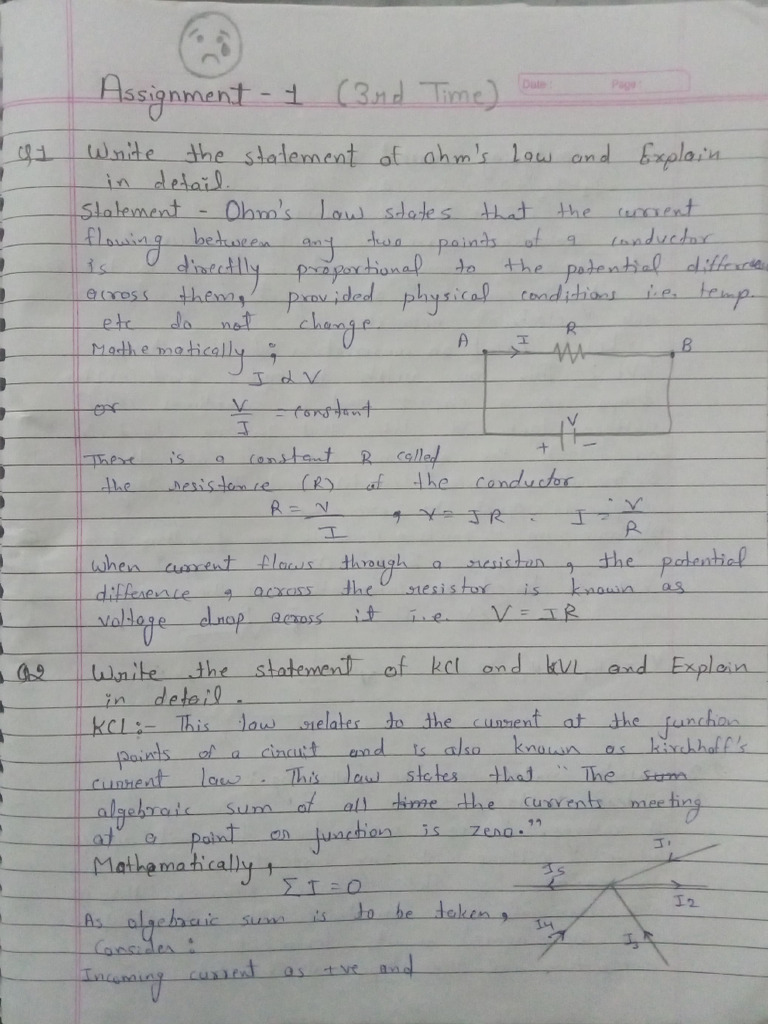 Assignment - 1 (3rd Time)
Date: Page:
Q1 Write the statement of ohm's law and Explain
in detail.
Statement - Ohm's law states that the current
flowing between any two points of a conductor
is directlly proportional to the potential difference
across them, provided physical conditions i.e. temp.
etc do not change.
Mathematically ;
I α V
A I R B
or V/I = constant
V
+ −
There is a constant R called
the resistance (R) of the conductor
R = V/I , V = IR . I = V/R
When current flows through a resistor, the potential
difference, across the resistor is known as
voltage drop across it i.e. V = IR
Q2 Write the statement of KCl and KVL and Explain
in detail.
KCL:- This law relates to the current at the junction
points of a circuit and is also known as kirchhoff's
current law. This law states that "The sum
algebraic sum of all time the currents meeting
at a point or junction is zero."
Mathematically,
ΣI = 0
I1
I5
I2
As algebraic sum is to be taken,
I4
I3
Consider:
Incoming current as +ve and